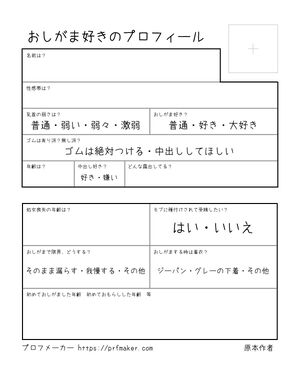 おしがま好きのプロフィール
名前は?
性感帯は?
乳首の弱さは?
おしがま好き?
普通・弱い・弱々・激弱
普通・好き・大好き
ゴムは有り派?無し派?
ゴムは絶対つける・中出ししてほしい
年齢は?
中出し好き?
どんな露出してる?
好き・嫌い
処女喪失の年齢は?
モブに種付けされて受精したい?
はい・いいえ
おしがまで限界、どうする?
おしがまする時は着衣?
そのまま漏らす・我慢する・その他
ジーパン・グレーの下着・その他
初めておしがました年齢 初めておもらしした年齢 等
プロフメーカー https://prfmaker.com
原本作者